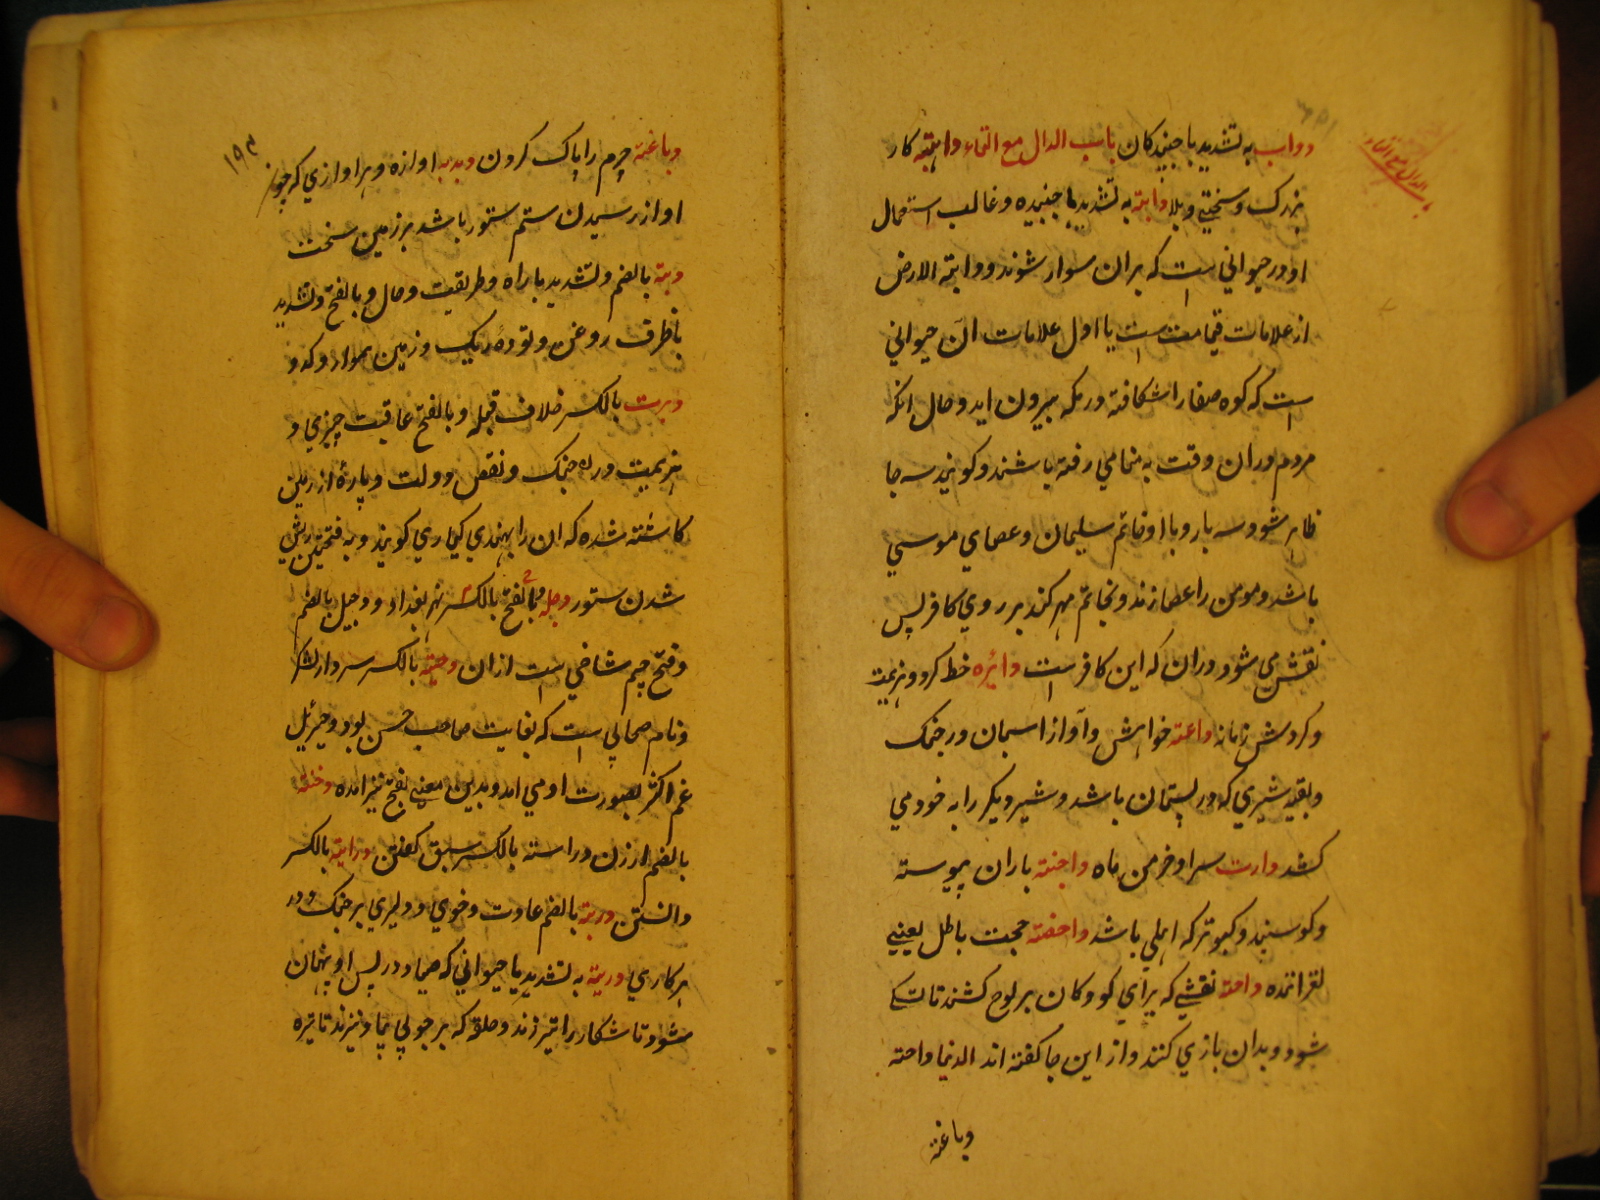 باب الدال مع التاء
دواب به تشدید با جنبندکان باب الدال مع التاء داهیة کار
بزرک و سختی و بلا دابة به تشدید با جنبیده و غالب استعمال
او در حیوانی ست که بران سوار شوند و دابة الارض
از علامات قیامت ست یا اول علامات ان حیوانی
ست که کوه صفا را شکافته در مکه بیرون اید و حال انکه
مردم دران وقت به منامی رفته باشند و کویند سه جا
ظاهر شود سه بار و با او خاتم سلیمان و عصای موسی
باشد و مومن را عصا زند و بخاتم مهر کند بر روی کافر پس
نقش می شود دران که این کافر ست دائره خط کرد و هزیمت
و کردش زمانه داعیة خواهش و آواز اسمان در جنک
و بقیه شیری که در پستان باشد و شیر دیکر را به خود می
کشد دارت سرا و خرمن ماه داجنة باران پیوسته
و کوسپند و کبوتر که اهلی باشد داحضة حجت باطل یعنی
لغزاننده داحة نقشی که برای کودکان بر لوح کشند تا تسکی
شود و بدان بازی کنند و از این جا کفته اند الدنیا داحة
دباغة
۱۹۳
دباغة چرم را پاک کردن دبدبه اوازه و هر اوازی که چون
اواز رسیدن ستم ستور باشد بر زمین سخت
دبة بالضم و تشدید با راه و طریقت و حال و بالفتح و تشدید
با ظرف روغن و تودهٔ ریک و زمین هموار و کدو
دبرت بالکسر خلاف قبله و بالفتح عاقبت چیزی و
هزیمت در جنک و نقص دولت و پارهٔ از زمین
کاشته شده که ان را بهندی کیاری کویند و به فتحتین ریش
شدن ستور دجلة بالفتح و بالکسر نهر بغداد و دجیل بالضم
و فتح جیم شاخی ست از ان دحیة بالکسر سردار لشکر
و نام صحابی ست که بغایت صاحب حسن بود و جبرئیل
غم اکثر بصورت او می امد و بدین معنی بفتح نیز امده دخنة
بالضم ارزن دراسته بالکسر سبق کفتن درایة بالکسر
دانستن دربة بالضم عادت و خوی و دلیری بر جنک و در
هر کاری دریة به تشدید یا حیوانی که صیاد در پس او پنهان
شود تا شکار را تیر زند و حلقه که بر چوبی نمایند و نیزند تا نیزه